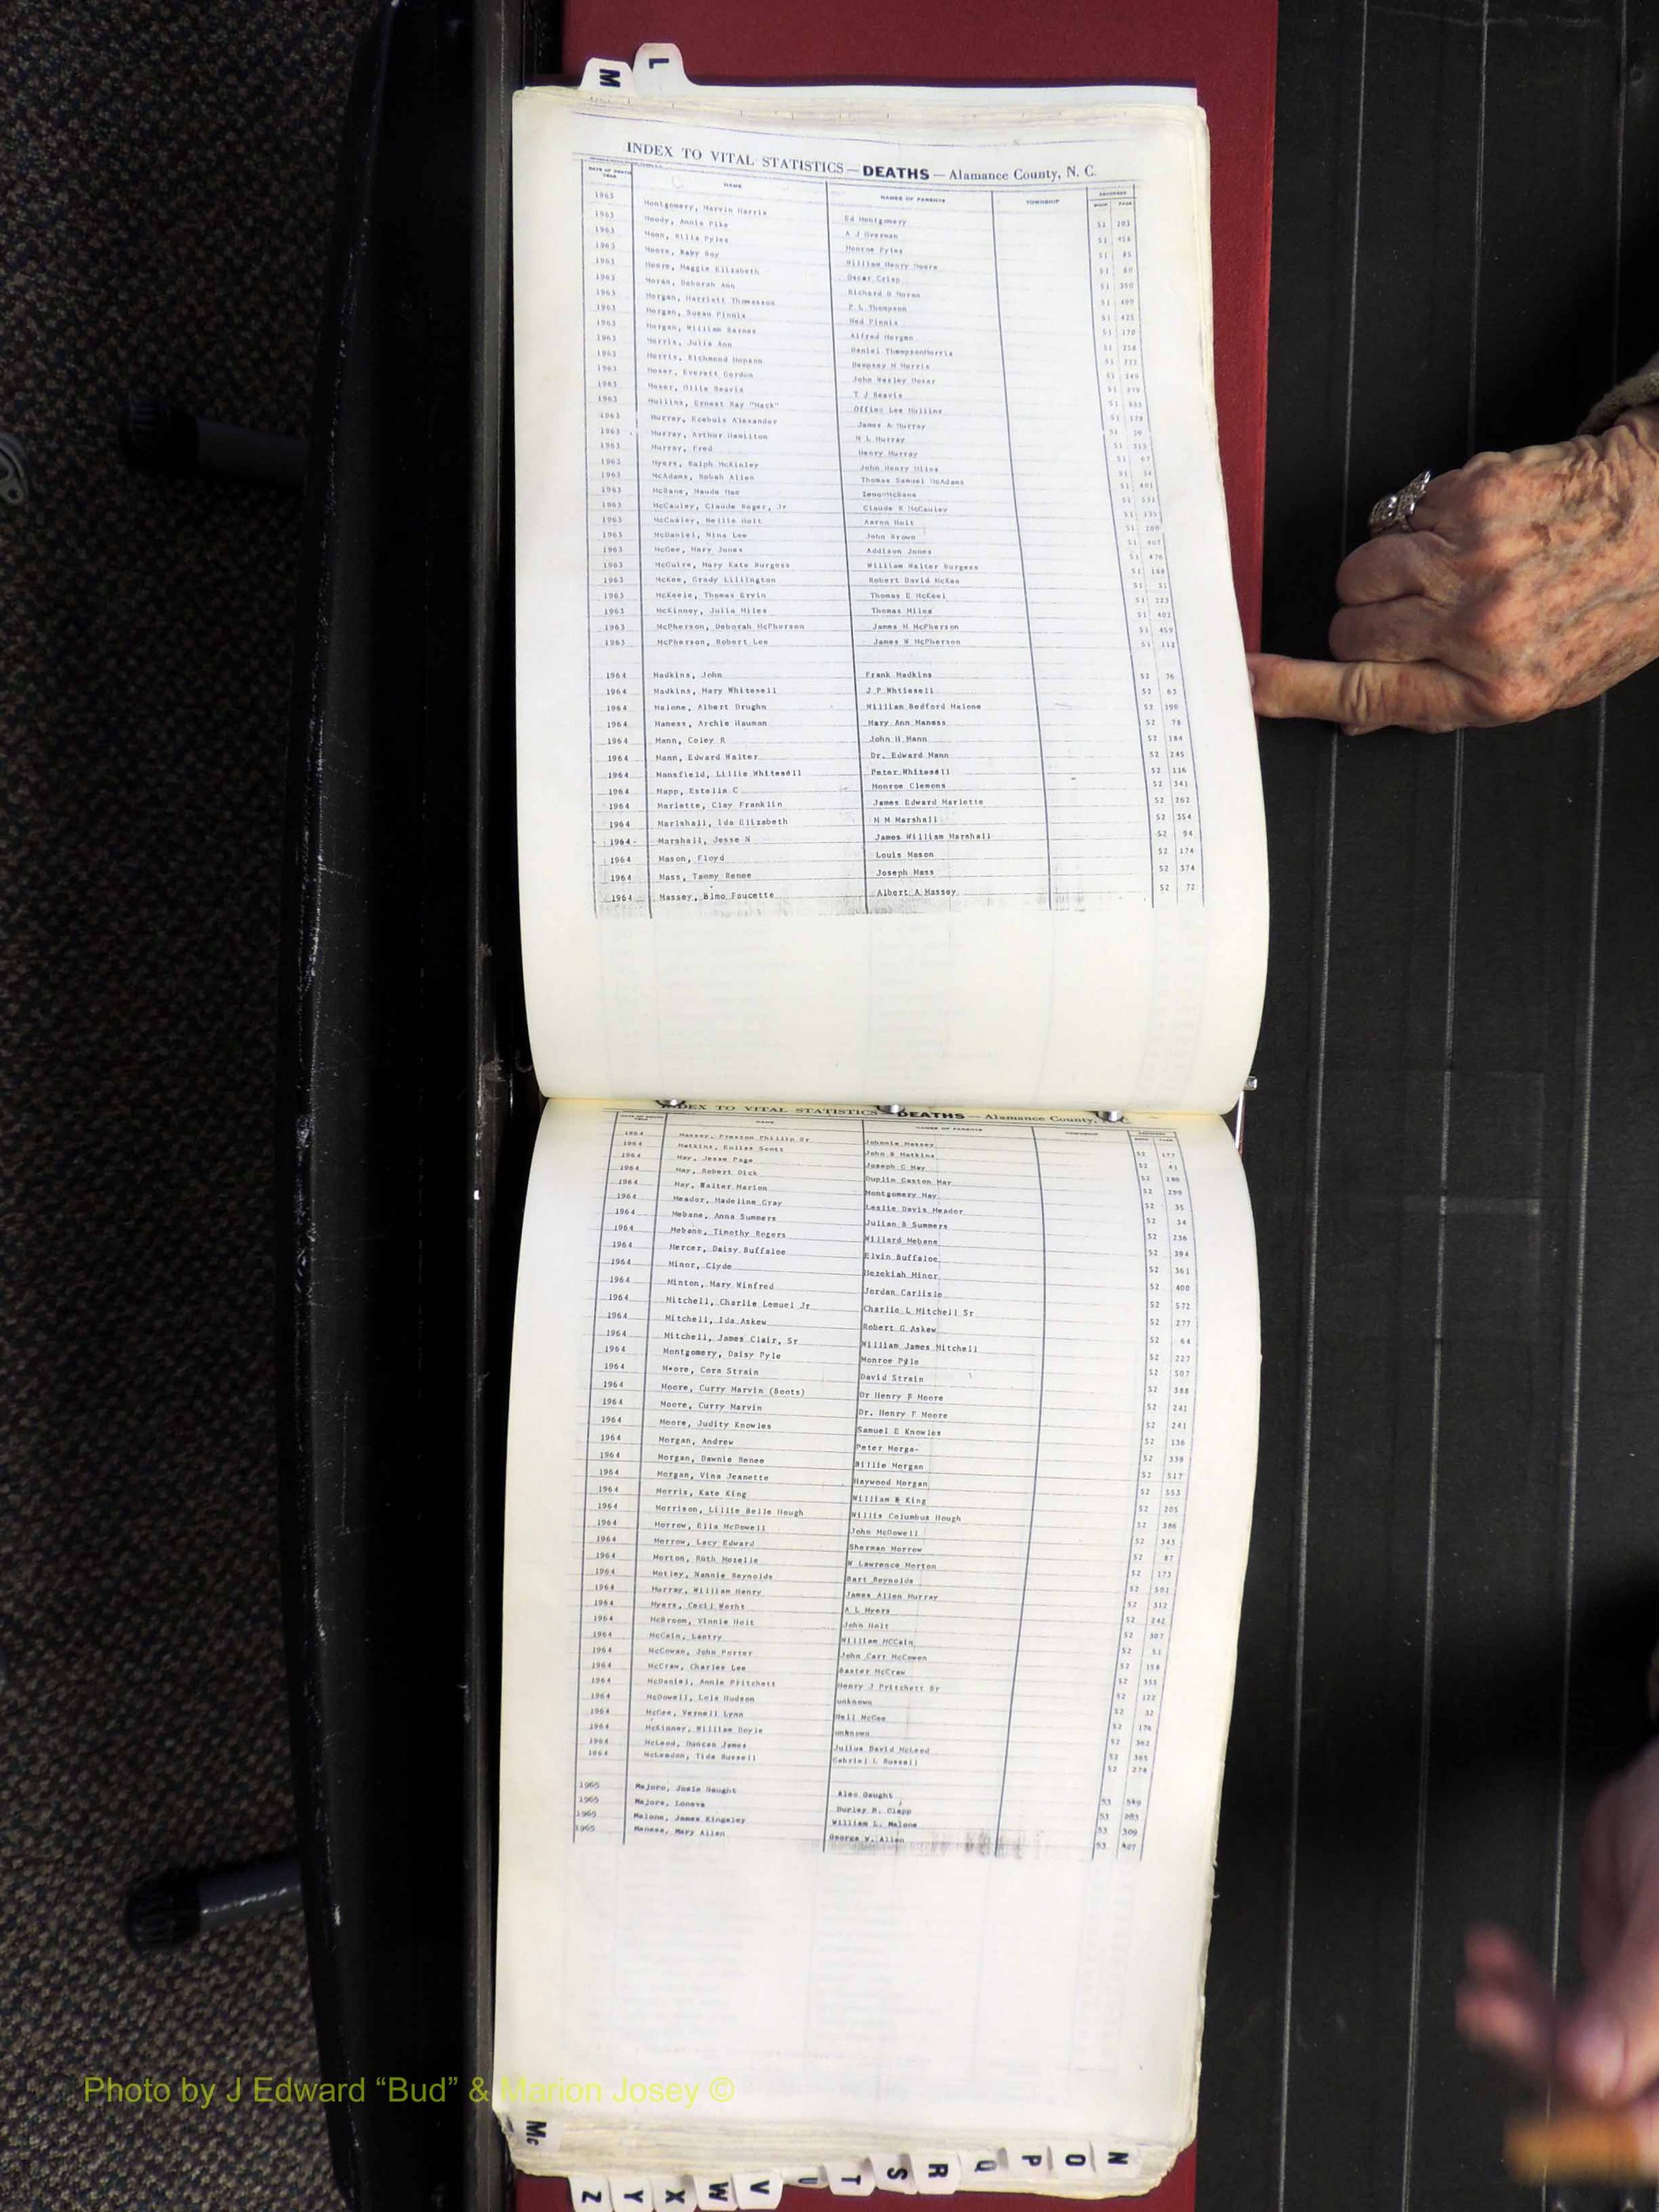 L
M
INDEX TO VITAL STATISTICS — DEATHS — Alamance County, N. C.
DATE OF DEATH YEAR NAME NAMES OF PARENTS TOWNSHIP RECORDED BOOK PAGE
1963 Montgomery, Marvin Harris Ed Montgomery 51 203
1963 Moody, Annie Pike A J Overman 51 458
1963 Moon, Pyles Monroe Pyles 51 85
1963 Moore, Baby Boy William Henry Moore 51 80
1963 Moore, Maggie Elizabeth Oscar Crisp 51 350
1963 Moran, Deborah Ann Richard Moran 51
1963 Morgan, Harriett Thomasson P L Thompson 51 425
1963 Morgan, Susan Pinnix Ned Pinnix 51 170
1963 Morgan, William Barnes Alfred Morgan 51 258
1963 Morris, Julia Ann Daniel ThompsonMorris 51
1963 Morris, Richmond Hopson Dempsey M Morris 51
1963 Moser, Everett Gordon John Wesley Moser 51
1963 Moser, Ollie Reavis T J Reavis 51
1963 Mullins, Ernest Ray "Mack" Lee Mullins 51 178
1963 Murray, Alexander James A Murray 51
1963 Murray, Arthur Hamilton M L Murray 51 313
1963 Murray, Fred Henry Murray 51 67
1963 Myers, Ralph McKinley John Henry 51
1963 McAdams, Allen Thomas Samuel McAdams 51
1963 McBane, Maude Mae McBane 51
1963 McCauley, Claude Roger, Jr Claude R McCauley 51 135
1963 McCauley, Nellie Holt Aaron Holt 51
1963 McDaniel, Nina Lee John Brown 51
1963 McGee, Mary Jones Addison Jones 51 476
1963 McGuire, Mary Kate Burgess William Walter Burgess 51 168
1963 McKee, Grady Lillington Robert David McKee 51 31
1963 McKeele, Thomas Ervin Thomas E McKeel 51 223
1963 McKinney, Julia Miles Thomas Miles 51 402
1963 McPherson, Deborah McPherson James H McPherson 51 459
1963 McPherson, Robert Lee James W McPherson 51 112
1964 Madkins, John Frank Madkins 52 76
1964 Madkins, Mary Whitesell J P Whtiesell 52 63
1964 Malone, Albert Drughn William Bedford Malone 52 190
1964 Maness, Archie Hauman Mary Ann Maness 52 78
1964 Mann, Coley R John H Mann 52 184
1964 Mann, Edward Walter Dr. Edward Mann 52 245
1964 Mansfield, Lillie Whitesell Peter Whitesell 52 116
1964 Mapp, Estella C Monroe Clemons 52 341
1964 Marlette, Clay Franklin James Edward Marlette 52 262
1964 Marlshall, Ida Elizabeth M M Marshall 52 354
1964 Marshall, Jesse N James William Marshall 52 94
1964 Mason, Floyd Louis Mason 52 174
1964 Mass, Tammy Renee Joseph Mass 52 374
1964 Massey, Elmo Faucette Albert A Massey 52 72
INDEX TO VITAL STATISTICS — DEATHS — Alamance County, N. C.
DATE OF DEATH YEAR NAME NAMES OF PARENTS TOWNSHIP RECORDED BOOK PAGE
1964 Massey, Preston Phillip Sr Johnnie Massey 52 177
1964 Matkins, Scott John B Matkins 52 41
1964 May, Jesse Page Joseph G May 52 280
1964 May, Robert Dick Duplin Gaston May 52 299
1964 May, Walter Marion Montgomery May 52 35
1964 Meador, Madeline Gray Leslie Davis Meador 52 34
1964 Mebane, Anna Summers Julian B Summers 52 236
1964 Mebane, Timothy Rogers Willard Mebane 52 394
1964 Mercer, Daisy Buffaloe Elvin Buffaloe 52 361
1964 Minor, Clyde Hezekiah Minor 52 400
1964 Minton, Mary Winfred Jordan Carlisle 52 572
1964 Mitchell, Charlie Lemuel Jr Charlie L Mitchell Sr 52 277
1964 Mitchell, Ida Askew Robert G Askew 52 64
1964 Mitchell, James Clair, Sr William James Mitchell 52 227
1964 Montgomery, Daisy Pyle Monroe Pyle 52 507
1964 Moore, Cora Strain David Strain 52 388
1964 Moore, Curry Marvin (Boots) Dr Henry F Moore 52 241
1964 Moore, Curry Marvin Dr. Henry F Moore 52 241
1964 Moore, Judity Knowles Samuel E Knowles 52 136
1964 Morgan, Andrew Peter Morga- 52 339
1964 Morgan, Dawnie Renee Billie Morgan 52 517
1964 Morgan, Vina Jeanette Haywood Morgan 52 553
1964 Morris, Kate King William B King 52 205
1964 Morrison, Lillie Belle Hough Willis Columbus Hough 52 386
1964 Morrow, Ella McDowell John McDowell 52 343
1964 Morrow, Lacy Edward Sherman Morrow 52 87
1964 Morton, Ruth Mozelle W Lawrence Morton 52 173
1964 Motley, Nannie Reynolds Bart Reynolds 52 501
1964 Murray, William Henry James Allen Murray 52 312
1964 Myers, Cecil Worht A L Myers 52 242
1964 McBroom, Vinnie Holt John Holt 52 307
1964 McCain, Lantry William MCCain 52 51
1964 McCowan, John Porter John Carr McCowen 52 158
1964 McCraw, Charles Lee Baxter McCraw 52 355
1964 McDaniel, Annie Pritchett Henry J Pritchett Sr 52 122
1964 McDowell, Lola Hudson unknown 52 32
1964 McGee, Vernell Lynn Nell McGee 52 176
1964 McKinney, William Doyle unknown 52 362
1964 McLeod, Duncan James Julius David McLeod 52 365
1964 McLendon, Tida Russell Gabriel L Russell 52 278
1965 Majors, Josie Gaught Gaught 53 549
1965 Majors, Loneva Burley B. Clapp 53 203
1965 Malone, James Kingsley William L. Malone 53 309
1965 Maness, Mary Allen George W. Allen 53 427
Photo by J Edward “Bud” & Marion Josey ©
Mc
N
O
P
Q
R
S
T
U
V
W
X
Y
Z